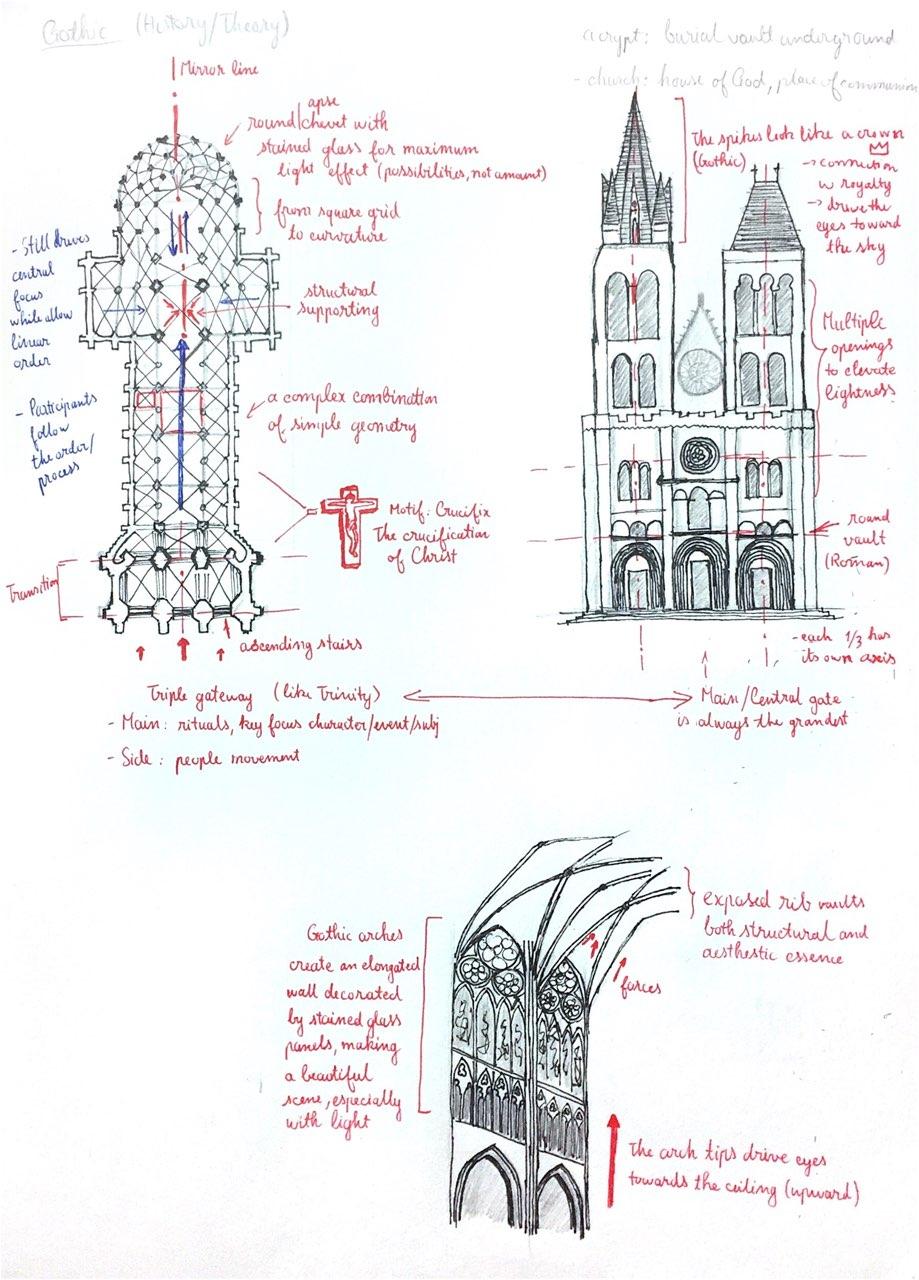 Gothic (History/Theory)
a crypt: burial vault underground
- church: house of God, place of communion
Mirror line
apse
round/chevet with
stained glass for maximum
light effect (possibilities, not amount)
from square grid
to curvature
structural
supporting
a complex combination
of simple geometry
Motif: Crucifix
The crucification
of Christ
- Still drives
central
focus
while allow
linear
order
- Participants
follow
the order/
process
Transition
ascending stairs
Triple gateway (like Trinity)
- Main: rituals, key focus character/event/subj
- Side: people movement
The spikes look like a crown
(Gothic)
-> connection
w royalty
-> drive the
eyes toward
the sky
Multiple
openings
to elevate
lightness
round
vault
(Roman)
- each 1/3 has
its own axis
Main/Central gate
is always the grandest
Gothic arches
create an elongated
wall decorated
by stained glass
panels, making
a beautiful
scene, especially
with light
exposed rib vaults
both structural and
aesthestic essence
forces
The arch tips drive eyes
towards the ceiling (upward)